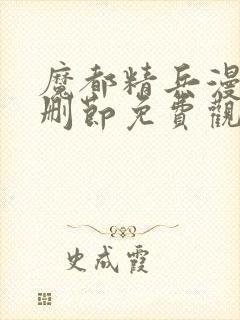 魔都精兵漫
删節免費觀
史成霞